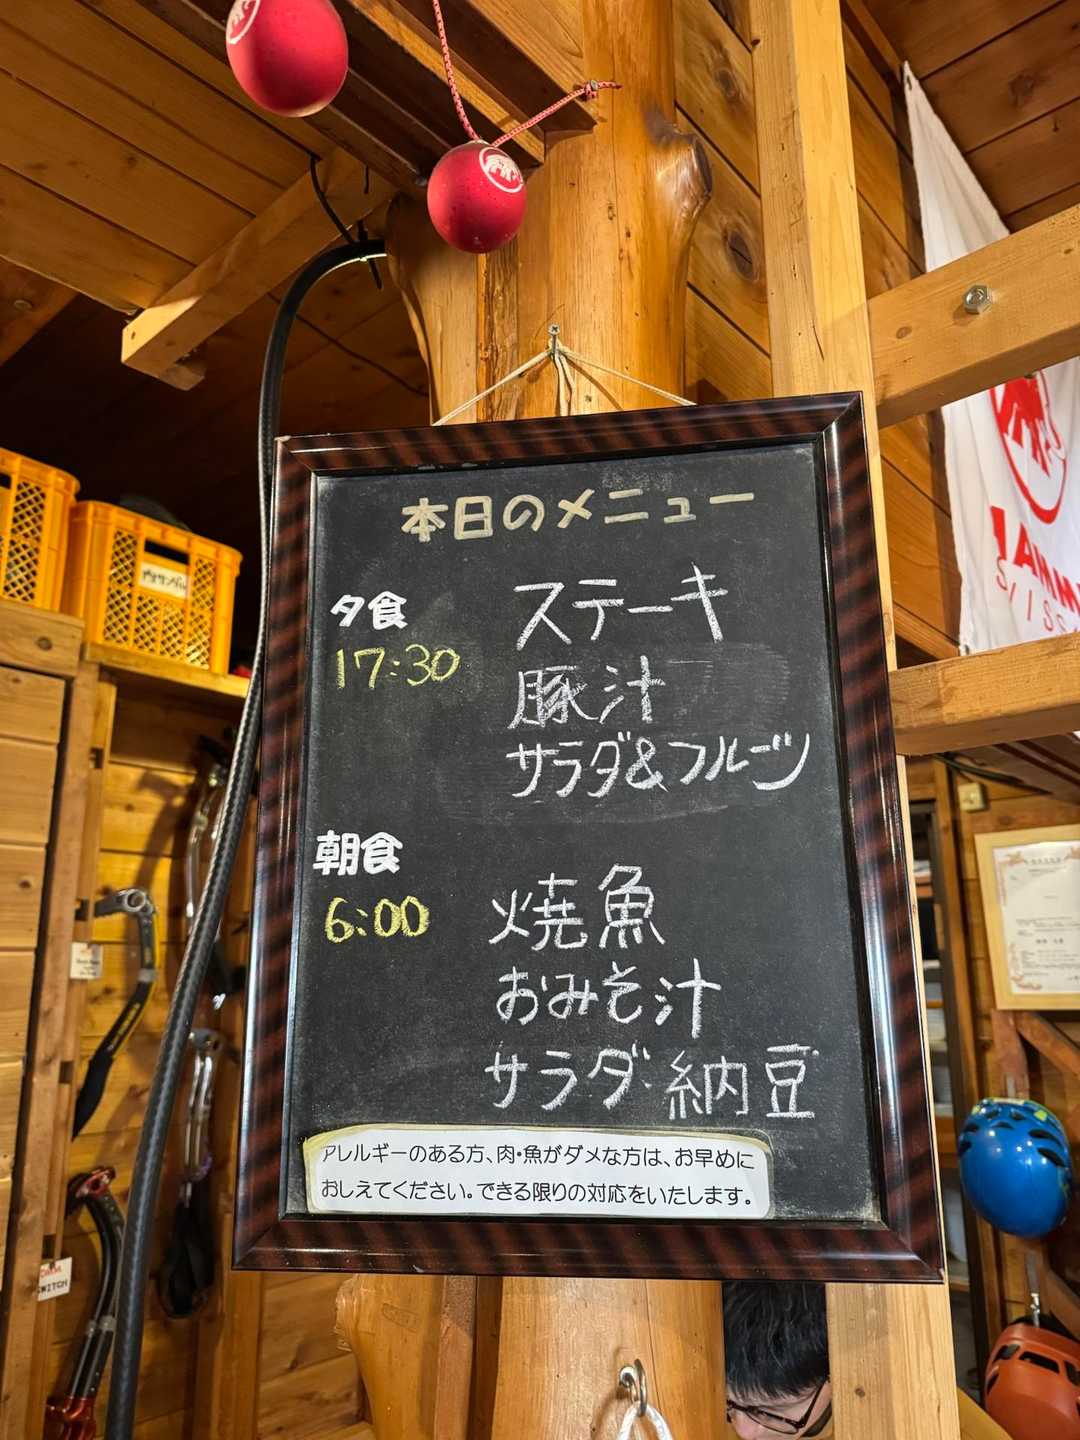 本日のメニュー
夕食
17:30
ステーキ
豚汁
サラダ&フルーツ
朝食
6:00
焼魚
おみそ汁
サラダ 納豆
アレルギーのある方、肉・魚がダメな方は、お早めに
おしえてください。できる限りの対応をいたします。